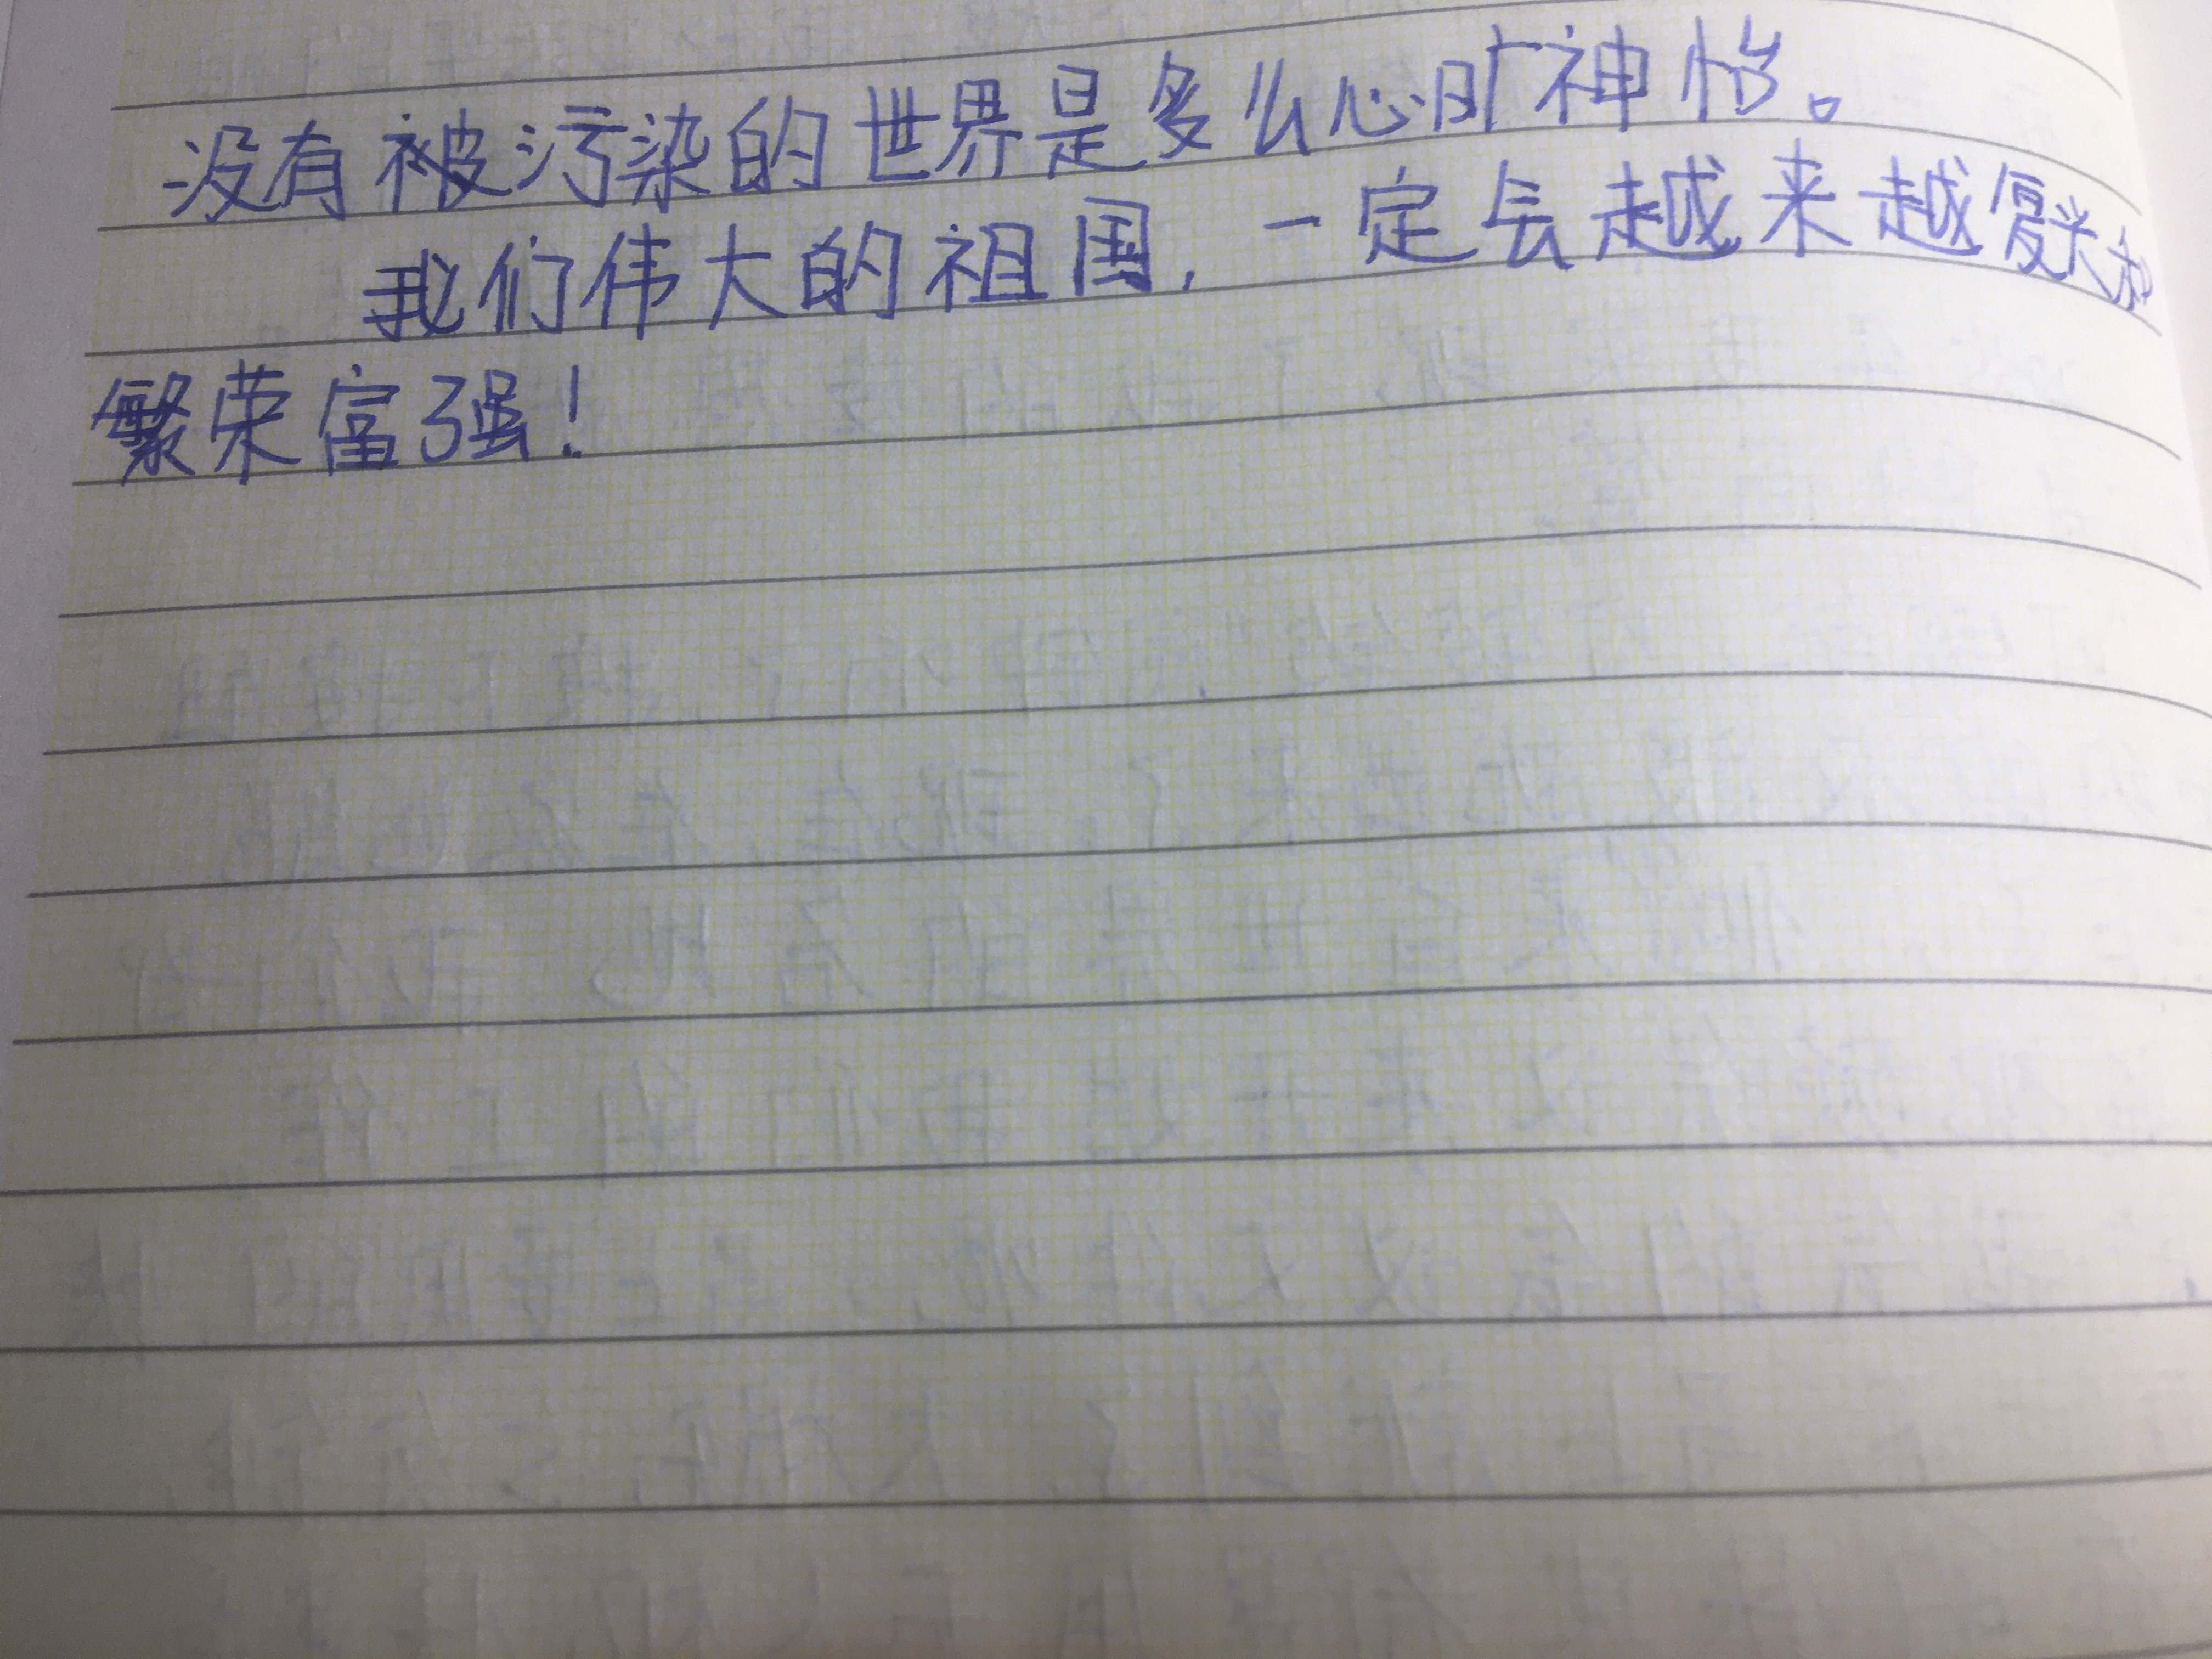 没有被污染的世界是多么心旷神怡。
我们伟大的祖国，一定会越来越
繁荣富强！